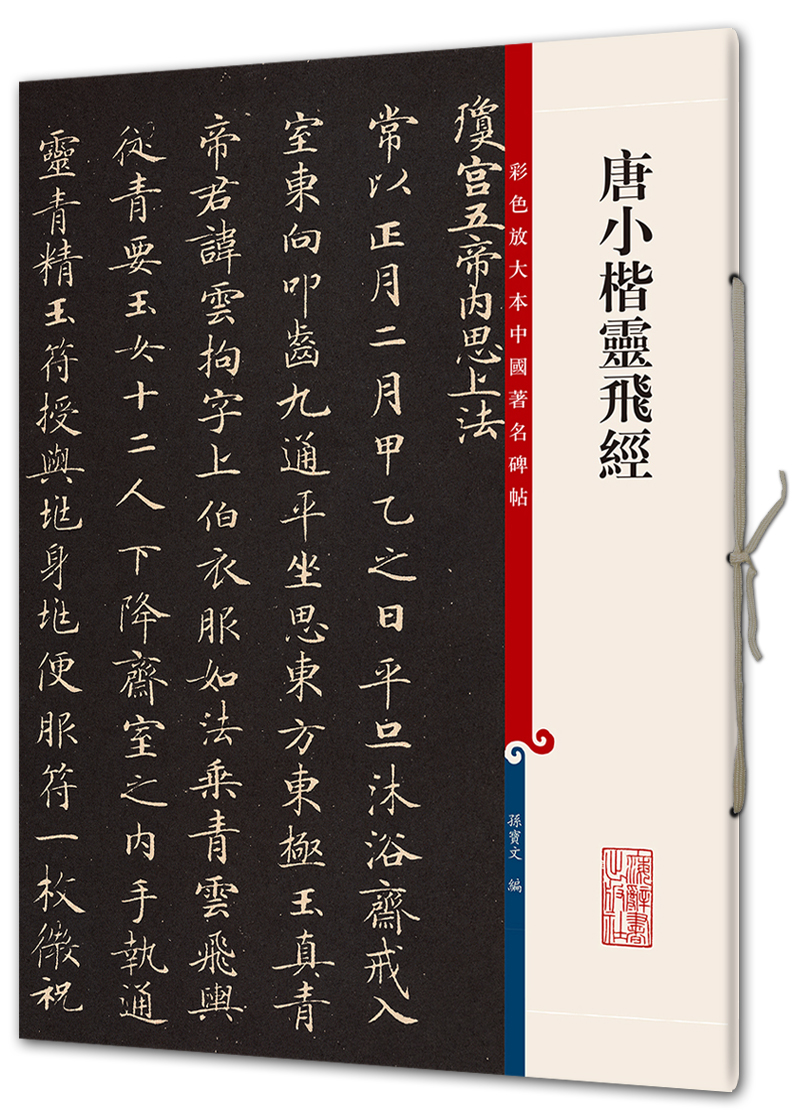 唐小楷靈飛經
海辭書
出版社
彩色放大本中國著名碑帖
孫寶文 編
瓊宫五帝内思上法
常以正月二月甲乙之日平旦沐浴齋戒入
室東向叩齒九通平坐思東方東極玉真青
帝君諱雲拘字上伯衣服如法乘青雲飛輿
從青要玉女十二人下降齋室之内手執通
靈青精玉符授與兆身兆便服符一枚微祝